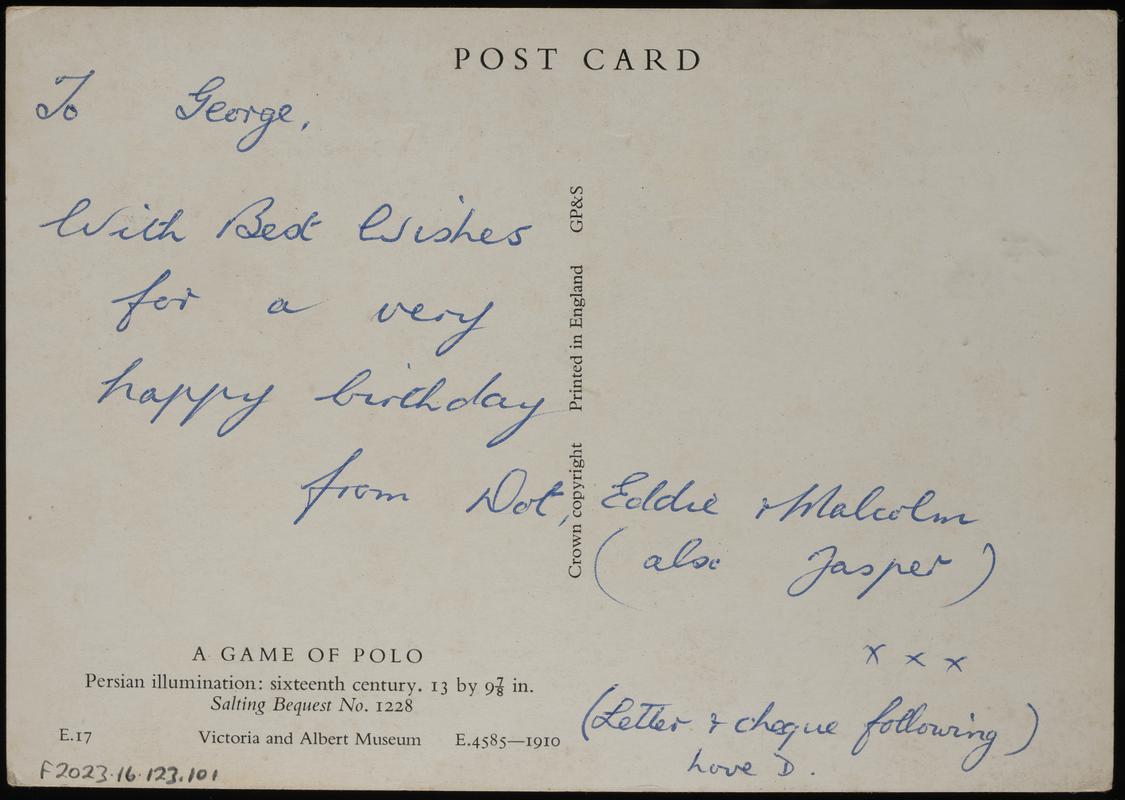 POST CARD
To George,
With Best Wishes
for a very
happy birthday
from Dot, Eddie & Malcolm
(also Jasper)
x x x
(Letter & cheque following)
Love D.
Crown copyright Printed in England GP&S
A GAME OF POLO
Persian illumination: sixteenth century. 13 by 9⅞ in.
Salting Bequest No. 1228
E.17 Victoria and Albert Museum E.4585—1910
F2023.16.123.101